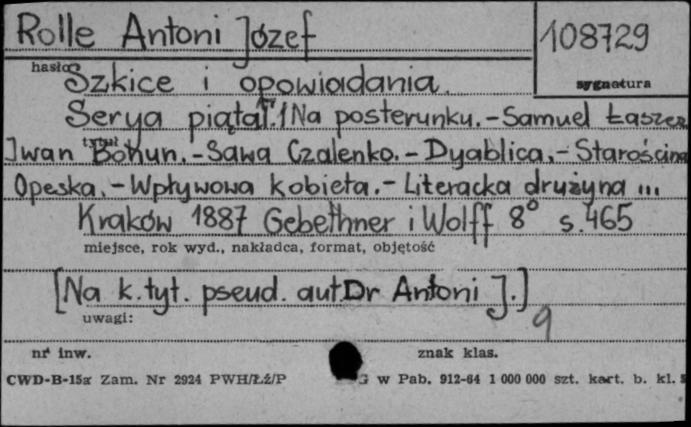 Rolle Antoni Józef
108729
hasło
sygnatura
Szkice i opowiadania.
Serya piąta. T. 1 Na posterunku. - Samuel Łaszcz
tytuł
Iwan Bohun. - Sawa Czalenko. - Dyablica. - Starościna
Opeska. - Wpływowa kobieta. - Literacka drużyna ...
Kraków 1887 Gebethner i Wolff 8° s. 465
miejsce, rok wyd., nakładca, format, objętość
[Na k. tyt. pseud. aut Dr Antoni J.]
uwagi:
9
nr inw.
znak klas.
CWD-B-15a Zam. Nr 2924 PWH/Łź/P
G w Pab. 912-64 1 000 000 szt. kart. b. kl.